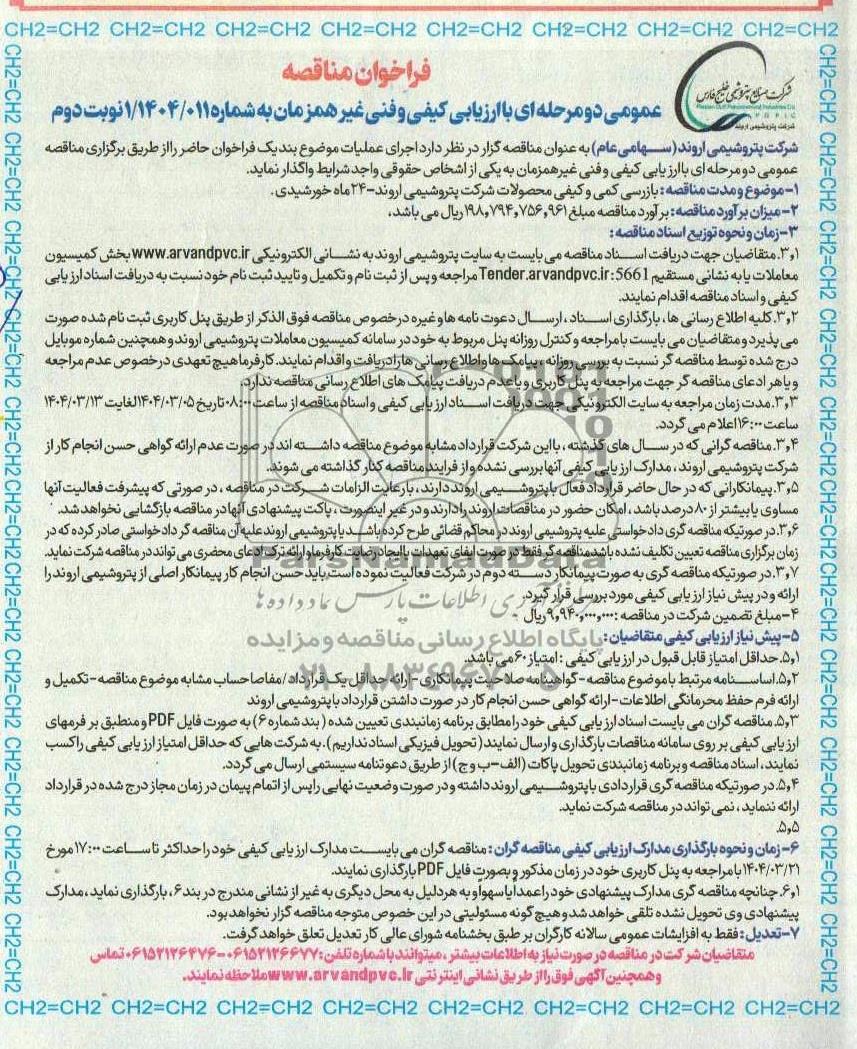 CH2=CH2 CH2=CH2 CH2=CH2 CH2=CH2 CH2=CH2 CH2=CH2 CH2=CH2 CH2=CH2
شرکت صنایع پتروشیمی خلیج فارس
Persian Gulf Petrochemical Industries Co.
P G P I C
شرکت پتروشیمی اروند
فراخوان مناقصه
عمومی دو مرحله ای با ارزیابی کیفی و فنی غیر همزمان به شماره ۱/۱۴۰۴/۰۱۱ نوبت دوم
شرکت پتروشیمی اروند (سهامی عام) به عنوان مناقصه گزار در نظر دارد اجرای عملیات موضوع بند یک فراخوان حاضر را از طریق برگزاری مناقصه
عمومی دو مرحله ای با ارزیابی کیفی و فنی غیر همزمان به یکی از اشخاص حقوقی واجد شرایط واگذار نماید.
۱- موضوع و مدت مناقصه: بازرسی کمی و کیفی محصولات شرکت پتروشیمی اروند-۲۴ ماه خورشیدی.
۲- میزان برآورد مناقصه: برآورد مناقصه مبلغ ۱۹۸,۷۹۴,۷۵۶,۹۶۱ ریال می باشد،
۳- زمان و نحوه توزیع اسناد مناقصه:
۳,۱. متقاضیان جهت دریافت اسناد مناقصه می بایست به سایت پتروشیمی اروند به نشانی الکترونیکی www.arvandpvc.ir بخش کمیسیون
معاملات یا به نشانی مستقیم Tender.arvandpvc.ir:5661 مراجعه و پس از ثبت نام و تکمیل و تایید ثبت نام خود نسبت به دریافت اسناد ارزیابی
کیفی و اسناد مناقصه اقدام نمایند.
۳,۲. کلیه اطلاع رسانی ها، بارگذاری اسناد، ارسال دعوت نامه ها و غیره درخصوص مناقصه فوق الذکر از طریق پنل کاربری ثبت نام شده صورت
می پذیرد و متقاضیان می بایست با مراجعه و کنترل روزانه پنل مربوط به خود در سامانه کمیسیون معاملات پتروشیمی اروند و همچنین شماره موبایل
درج شده توسط مناقصه گر نسبت به بررسی روزانه پیامک ها و اطلاع رسانی ها را دریافت و اقدام نمایند. کارفرما هیچ تعهدی درخصوص عدم مراجعه
و یا هر ادعای مناقصه گر جهت مراجعه به پنل کاربری و یا عدم دریافت پیامک های اطلاع رسانی مناقصه ندارد.
۳,۳. مدت زمان مراجعه به سایت الکترونیکی جهت دریافت اسناد ارزیابی کیفی و اسناد مناقصه از ساعت ۰۸:۰۰ تاریخ ۱۴۰۴/۰۳/۰۵ لغایت ۱۴۰۴/۰۳/۱۳
ساعت ۱۶:۰۰ اعلام می گردد.
۳,۴. مناقصه گرانی که در سال های گذشته، با این شرکت قرارداد مشابه موضوع مناقصه داشته اند در صورت عدم ارائه گواهی حسن انجام کار از
شرکت پتروشیمی اروند، مدارک ارزیابی کیفی آنها بررسی نشده و از فرایند مناقصه کنار گذاشته می شوند.
۳,۵. پیمانکارانی که در حال حاضر قرارداد فعال با پتروشیمی اروند دارند، با رعایت الزامات شرکت در مناقصه، در صورتی که پیشرفت فعالیت آنها
مساوی یا بیشتر از ۸۰ درصد باشد، امکان حضور در مناقصات اروند را دارند و در غیر اینصورت، پاکت پیشنهادی آنها در مناقصه بازگشایی نخواهد شد.
۳,۶. در صورتیکه مناقصه گری دادخواستی علیه پتروشیمی اروند در محاکم قضائی طرح کرده باشد یا پتروشیمی اروند علیه آن مناقصه گر دادخواستی صادر کرده که در
زمان برگزاری مناقصه تعیین تکلیف نشده باشد مناقصه گر فقط در صورت ایفای تعهدات با ایجاد رضایت کارفرما و ارائه ترک دعای محضری می تواند در مناقصه شرکت نماید.
۳,۷. در صورتیکه مناقصه گری به صورت پیمانکار دسته دوم در شرکت فعالیت نموده است، باید حسن انجام کار پیمانکار اصلی از پتروشیمی اروند را
ارائه و در پیش نیاز ارزیابی کیفی مورد بررسی قرار گیرد.
۴- مبلغ تضمین شرکت در مناقصه: ۹,۹۴۰,۰۰۰,۰۰۰ ریال
۵- پیش نیاز ارزیابی کیفی متقاضیان:
۵,۱. حداقل امتیاز قابل قبول در ارزیابی کیفی: امتیاز ۶۰ می باشد.
۵,۲. اساسنامه مرتبط با موضوع مناقصه- گواهینامه صلاحیت پیمانکاری- ارائه حداقل یک قرارداد/ مفاصا حساب مشابه موضوع مناقصه- تکمیل و
ارائه فرم حفظ محرمانگی اطلاعات- ارائه گواهی حسن انجام کار در صورت داشتن قرارداد با پتروشیمی اروند
۵,۳. مناقصه گران می بایست اسناد ارزیابی کیفی خود را مطابق برنامه زمانبندی تعیین شده (بند شماره ۶) به صورت فایل PDF و منطبق بر فرمهای
ارزیابی کیفی بر روی سامانه مناقصات بارگذاری و ارسال نمایند (تحویل فیزیکی اسناد نداریم). به شرکت هایی که حداقل امتیاز ارزیابی کیفی را کسب
نمایند، اسناد مناقصه و برنامه زمانبندی تحویل پاکات (الف-ب و ج) از طریق دعوتنامه سیستمی ارسال می گردد.
۵,۴. در صورتیکه مناقصه گری قراردادی با پتروشیمی اروند داشته و در صورت وضعیت نهایی را پس از اتمام پیمان در زمان مجاز درج شده در قرارداد
ارائه ننماید، نمی تواند در مناقصه شرکت نماید.
۵,۵.
۶- زمان و نحوه بارگذاری مدارک ارزیابی کیفی مناقصه گران: مناقصه گران می بایست مدارک ارزیابی کیفی خود را حداکثر تا ساعت ۱۷:۰۰ مورخ
۱۴۰۴/۰۳/۲۱ با مراجعه به پنل کاربری خود در زمان مذکور و بصورت فایل PDF بارگذاری نمایند.
۶,۱. چنانچه مناقصه گری مدارک پیشنهادی خود را عمداً یا سهواً و به هر دلیل به محل دیگری به غیر از نشانی مندرج در بند ۶، بارگذاری نماید، مدارک
پیشنهادی وی تحویل نشده تلقی خواهد شد و هیچ گونه مسئولیتی در این خصوص متوجه مناقصه گزار نخواهد بود.
۷- تعدیل: فقط به افزایشات عمومی سالانه کارگران بر طبق بخشنامه شورای عالی کار تعدیل تعلق خواهد گرفت.
متقاضیان شرکت در مناقصه در صورت نیاز به اطلاعات بیشتر، میتوانند با شماره تلفن: ۰۶۱۵۲۱۲۶۶۷۷-۰۶۱۵۲۱۲۶۴۷۶ تماس
و همچنین آگهی فوق را از طریق نشانی اینترنتی www.arvandpvc.ir ملاحظه نمایند.
ParsNamadData
پایگاه اطلاع رسانی مناقصه و مزایده
CH2=CH2 CH2=CH2 CH2=CH2 CH2=CH2 CH2=CH2 CH2=CH2 CH2=CH2 CH2=CH2